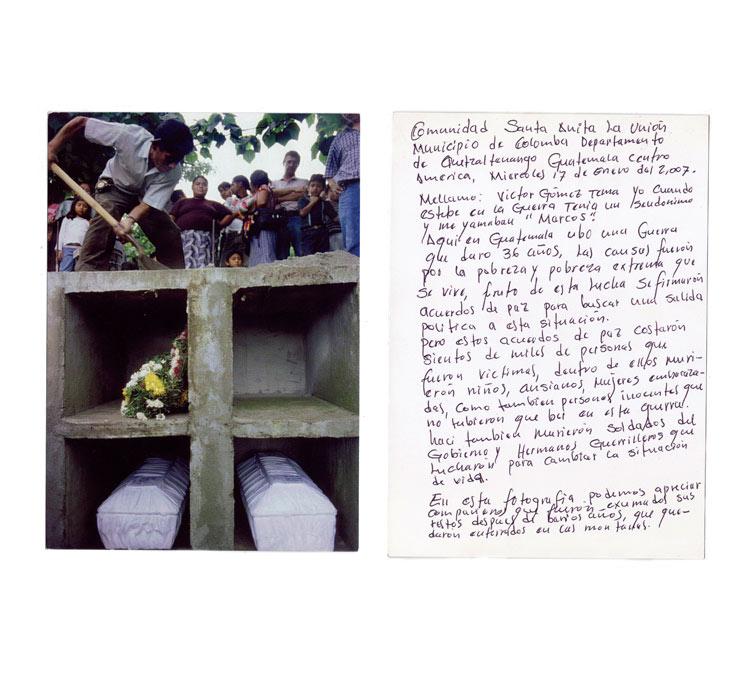 Comunidad Santa Anita La Unión
Municipio de Colomba Departamento
de Quetzaltenango Guatemala centro
America, Miercoles 17 de Enero del 2,007.
Mellamo: Victor Gómez Tema yo cuando
estebe en la Guerra Tenia un Seudonimo
y me yamaban "Marcos".
Aqui en Guatemala ubo una Guerra
que duro 36 años, Las causas fuerón
por la pobreza y pobreza extrema que
se vive, fruto de esta Lucha Se firmarón
acuerdos de paz para buscar una salida
politica a esta situación.
pero estos acuerdos de paz costarón
sientos de miles de personas que
fuerón victimas, dentro de ellos muri-
erón niños, ansianos, mujeres embaraza-
das, como tambien personas inocentes que
no tubierón que ber en esta guerra.
haci tambien murierón soldados del
Gobierno y Hermanos Guerrilleros que
Lucharón para cambiar la situación
de vida.
En esta fotografia podemos apreciar
compañeros que fuerón exumados sus
restos despues de barios años, que que-
darón enterrados en las montañas.